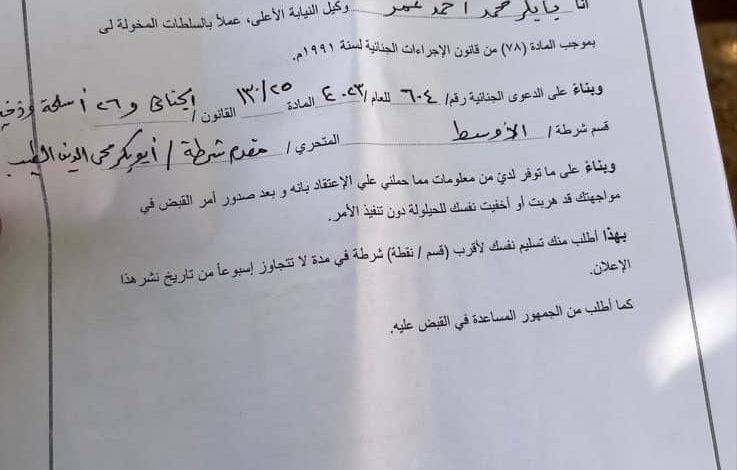 أنا بابكر محمد أحمد عمر وكيل النيابة الأعلى، عملاً بالسلطات المخولة لى
بموجب المادة (٧٨) من قانون الإجراءات الجنائية لسنة ١٩٩١م.
وبناءً على الدعوى الجنائية رقم/ ٦٠٤ للعام/ ٢٠٢٣ المادة ١٣٠/٢٥ القانون / الجنائى و ٢٦ أسلحة وذخيرة
قسم شرطة / الأوسط المتحري / مقدم شرطة / أبوبكر محى الدين الطيب
وبناءً على ما توفر لديّ من معلومات مما حملني علي الإعتقاد بانه و بعد صدور أمر القبض في
مواجهتك قد هربت أو أخفيت نفسك للحيلولة دون تنفيذ الأمر.
بهذا أطلب منك تسليم نفسك لأقرب (قسم / نقطة) شرطة في مدة لا تتجاوز إسبوعاً من تاريخ نشر هذا
الإعلان.
كما أطلب من الجمهور المساعدة في القبض عليه.